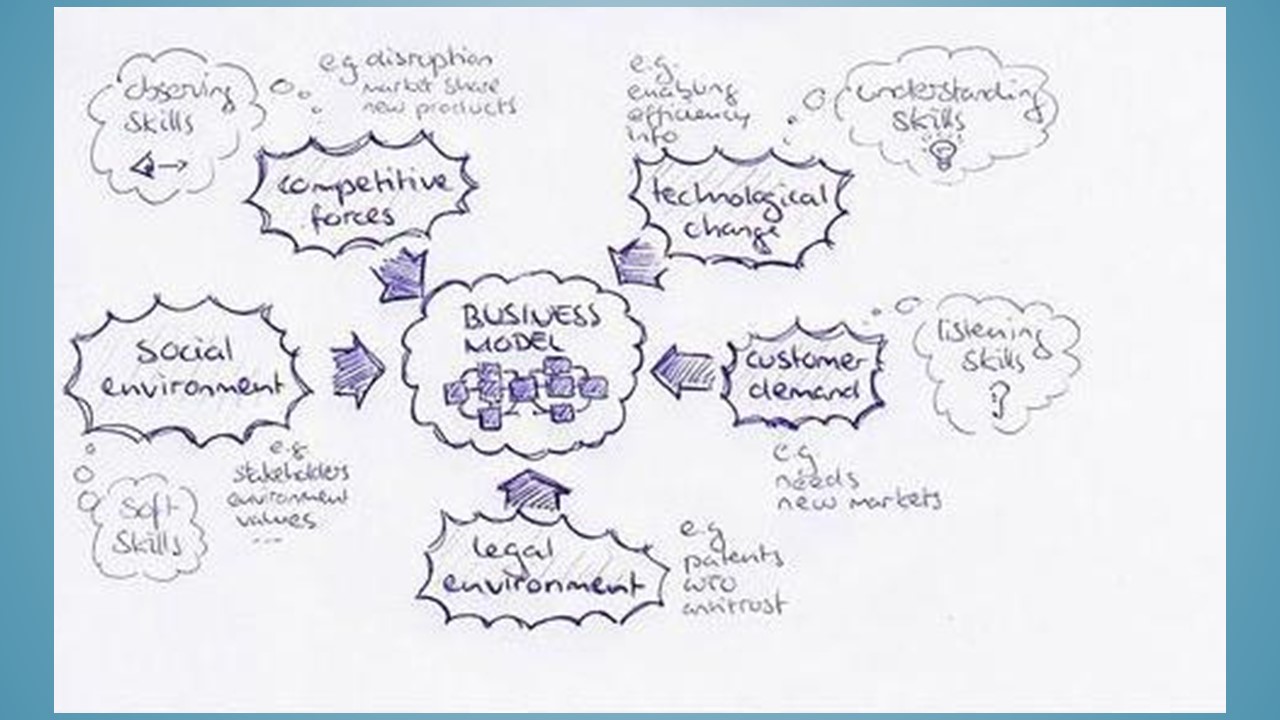 observing
skills
e.g disruption
market share
new products
competitive
forces
e.g.
enabling
efficiency
info
understanding
skills
technological
change
social
environment
BUSINESS
MODEL
customer
demand
listening
skills
e.g.
stakeholders
environment
values
...
soft
skills
e.g
needs
new markets
legal
environment
e.g
patents
WTO
antitrust